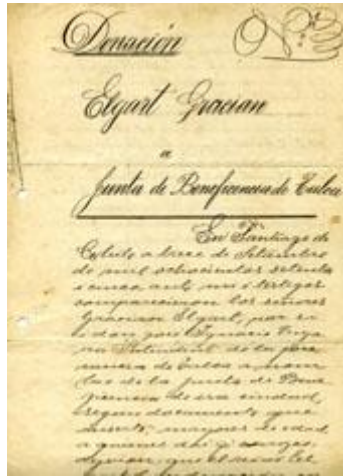 Donación
Elgart Gracian
a
Junta de Beneficencia de Curico
En Santiago de
Chile, a trece de Setiembre
de mil ochocientos setenta
i cinco, ante mi i testigos
comparecieron los señores
Gracian Elgart, por si
i don José Ignacio
Intendente de la pro
vincia de Curico a nom
bre de la junta de Bene
ficencia de esa ciudad,
segun documento que
inserto, mayores de edad,
a quienes doi i conozco
dijeron: que el señor El